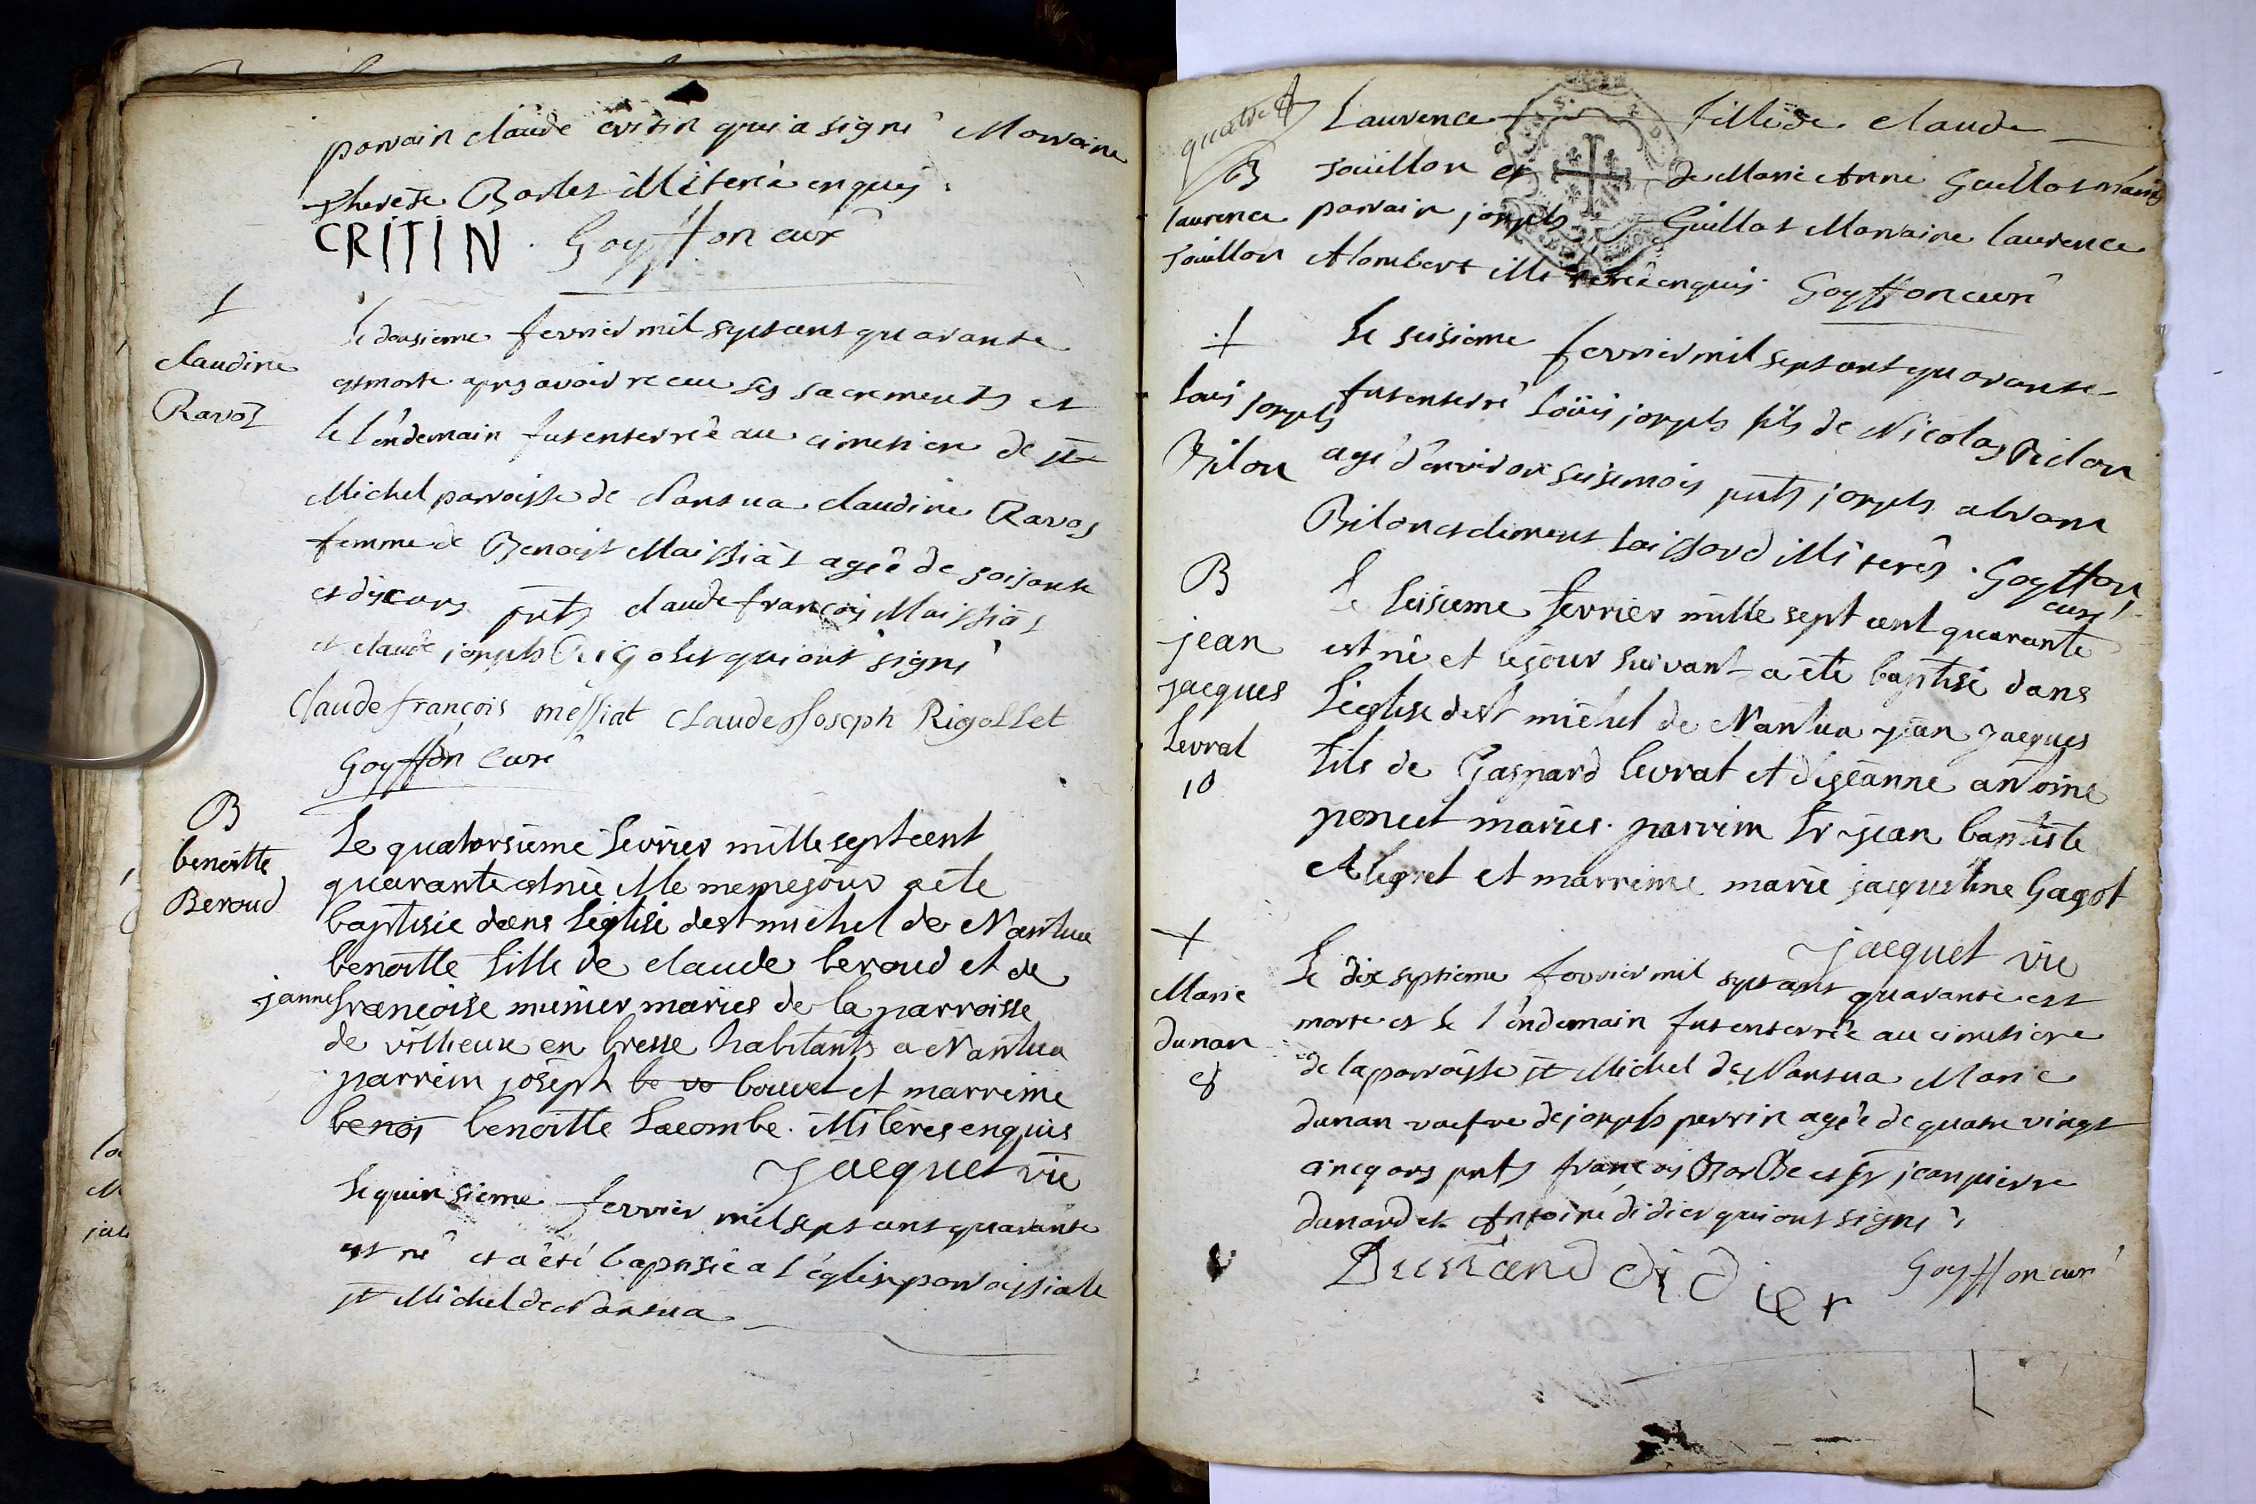 parrain claude critin qui a signé Marraine
therese Barlet illiterée enquis.
CRITIN . Goyffon curé
†
claudine
Ravot
le dousieme fevrier mil sept cent quarante
est morte apres avoir receu ses sacrements et
le l'endemain fut enterrée au cimetiere de st
Michel parroisse de Nantua claudine Ravot
femme de Benoist Maissiat agée de soisante
et dix ans pnts claude françois Maissiat
et claude joseph Rigolet qui ont signé
Claude françois messiat claude Joseph Rigollet
Goyffon curé
B
benoitte
Beroud
Le quatorsieme fevrier mille sept cent
quarante est née et le meme jour a été
baptisée dans l'eglise de st michel de Nantua
benoitte fille de claude beroud et de
janne françoise munier mariés de la parroisse
de villieux en bresse habitants a Nantua
parrein joseph be vo bouvet et marreine
benoi benoitte Lacombe. illiteres enquis
Jacquet vic
Le quinsieme fevrier mil sept cent quarante
est né et a été baptisée a l'église parroissiale
st Michel de Nantua
quatre 4
B
laurence
souillon
Laurence fille de claude
souillon et de Marie Anne Guillot mariés
parrain joseph Guillot Marraine laurence
Alombert illiterés enquis. Goyffon curé
†
Louis joseph
Bilon
Le seisieme fevrier mil sept cent quarante
fut enterré Loüis joseph fils de Nicolas Bilon
agé d'environ seise mois pnts joseph
Bilon et climent illiterés. Goyffon
curé
B
jean
jacques
levrat
10
Le seisieme fevrier mille sept cent quarante
est né et le jour suivant a été baptisé dans
l'eglise de st michel de Nantua jean jacques
fils de Gaspard levrat et de jeanne antoine
poncet mariés. parrein sr jean baptiste
Alegret et marreine marie jacqueline Gagot
Jacquet vic
†
Marie
dunan
8
Le dix septieme fevrier mil sept cent quarante est
morte et le l'endemain fut enterrée au cimetiere
de la parroisse st Michel de Nantua Marie
dunan vuefve de joseph perrin agée de quatre vingt
cinq ans pnts françois Barbe et sr jean pierre
dunand et Antoine didier qui ont signé
Dunand didier Goyffon curé